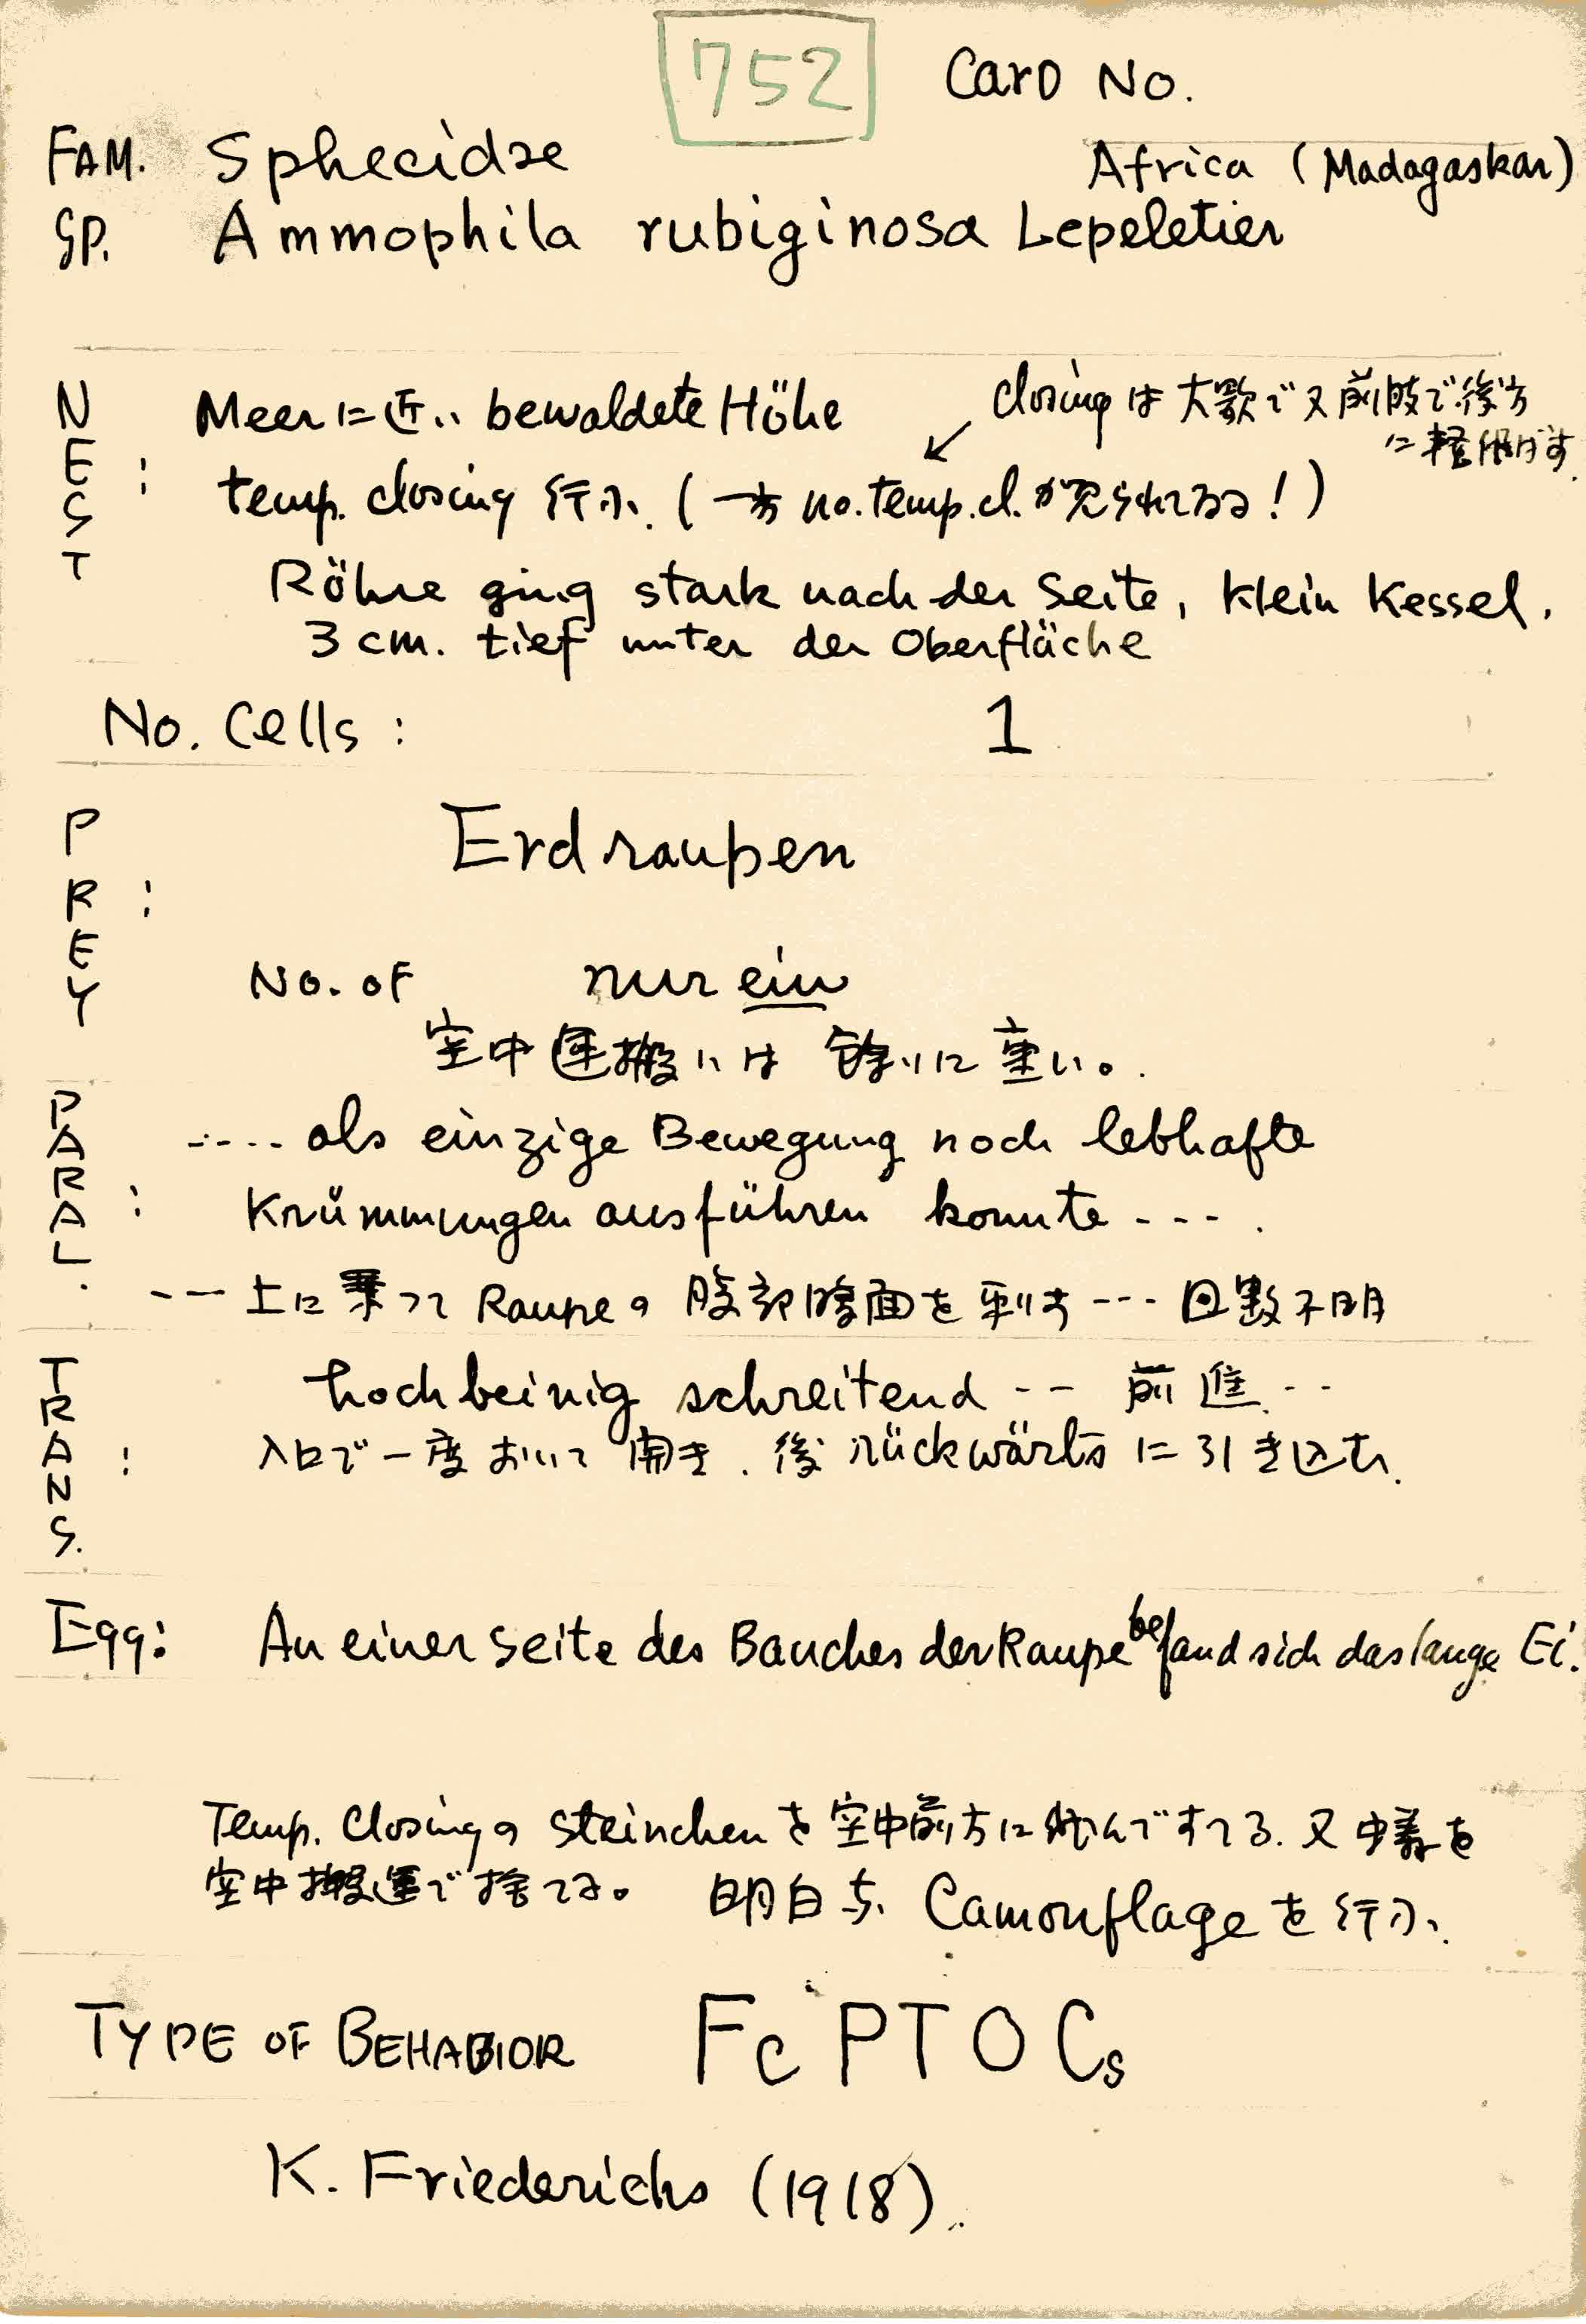 752
Card No.
FAM. Sphecidae
Africa (Madagaskar)
SP. Ammophila rubiginosa Lepeletier
NEST:
Meerに近い bewaldete Höhe
closing は大歌で又前肢で後方
に
temp. closing 行ふ. (一方 no. temp. cl. が見られてゐる!)
Röhre ging stark nach der Seite, klein Kessel.
3 cm. tief unter der Oberfläche
No. Cells: 1
PREY:
Erdraupen
No. of nur ein
空中運搬には余りに重い。
PARAL.:
---- als einzige Bewegung noch lebhafte
Krümmungen ausführen konnte ---.
--- 上に乗って Raupeの腹部腹面を刺す --- 回数不明
TRANS.:
hochbeinig schreitend -- 前進. --
入口で一度おいて開き. 後 rückwärts に引き込む.
Egg: An einer Seite des Bauches der Raupe befand sich das lange Ei.
Temp. Closingの Steinchen を空中前方に飛んですてる. 又 を
空中搬運で捨てる。 明白な Camouflage を行ふ.
TYPE OF BEHABIOR Fc PTOCs
K. Friederichs (1918).